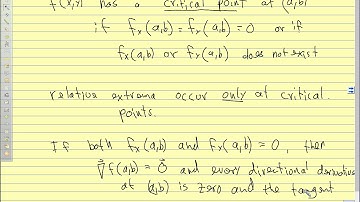 f(x,y) has a critical point at (a,b)
if fx(a,b) = fy(a,b) = 0 or if
fx(a,b) or fy(a,b) does not exist
relative extrema occur only at critical
points.
If both fx(a,b) and fy(a,b) = 0, then
∇f(a,b) = 0⃗ and every directional derivative
at (a,b) is zero and the tangent